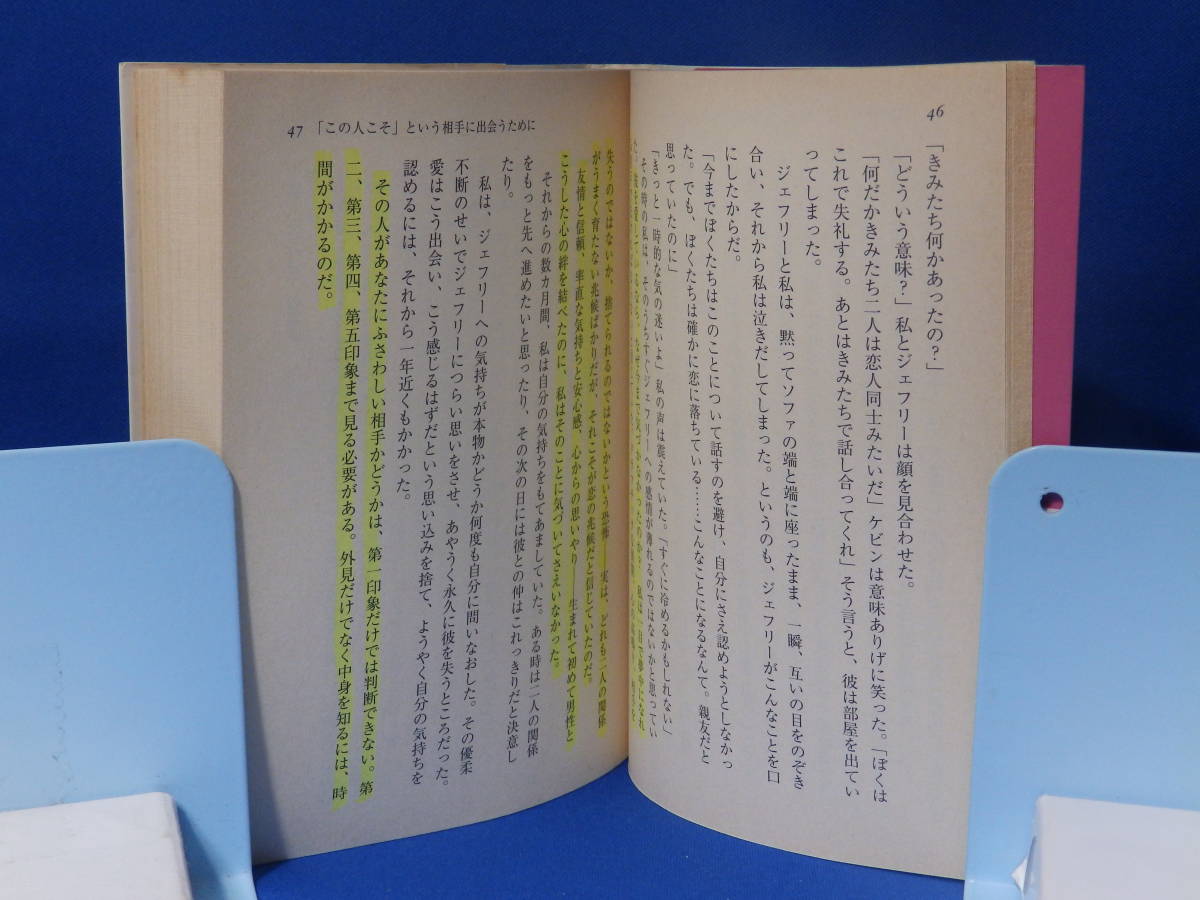 46
「きみたち何かあったの?」
「どういう意味?」私とジェフリーは顔を見合わせた。
「何だかきみたち二人は恋人同士みたいだ」ケビンは意味ありげに笑った。「ぼくは
これで失礼する。あとはきみたちで話し合ってくれ」そう言うと、彼は部屋を出てい
ってしまった。
ジェフリーと私は、黙ってソファの端と端に座ったまま、一瞬、互いの目をのぞき
合い、それから私は泣きだしてしまった。というのも、ジェフリーがこんなことを口
にしたからだ。
「今までぼくたちはこのことについて話すのを避け、自分にさえ認めようとしなかっ
た。でも、ぼくたちは確かに恋に落ちている……こんなことになるなんて。親友だと
思っていたのに」
「きっと一時的な気の迷いよ」私の声は震えていた。「すぐに冷めるかもしれない」
その時の私は、そのうちすぐジェフリーへの感情が薄れるのではないかと思ってい
47 「この人こそ」という相手に出会うために
失うのではないか、捨てられるのではないかという恐怖――実は、どれも二人の関係
がうまく育たない兆候ばかりだが、それこそが恋の兆候だと信じていたのだ。
友情と信頼、率直な気持ちと安心感、心からの思いやり――生まれて初めて男性と
こうした心の絆を結べたのに、私はそのことに気づいてさえいなかった。
それからの数カ月間、私は自分の気持ちをもてあましていた。ある時は二人の関係
をもっと先へ進めたいと思ったり、その次の日には彼との仲はこれっきりだと決意し
たり。
私は、ジェフリーへの気持ちが本物かどうか何度も自分に問いなおした。その優柔
不断のせいでジェフリーにつらい思いをさせ、あやうく永久に彼を失うところだった。
愛はこう出会い、こう感じるはずだという思い込みを捨て、ようやく自分の気持ちを
認めるには、それから一年近くもかかった。
その人があなたにふさわしい相手かどうかは、第一印象だけでは判断できない。第
二、第三、第四、第五印象まで見る必要がある。外見だけでなく中身を知るには、時
間がかかるのだ。